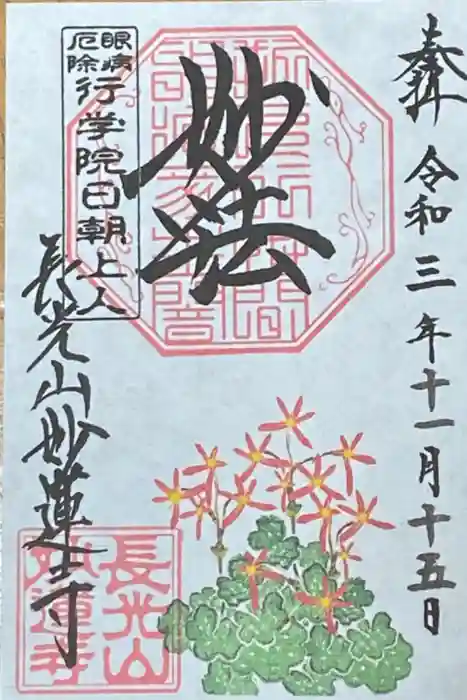 奉拝 令和三年十一月十五日
妙法
眼病
厄除
行学院日朝上人
長光山妙蓮寺
長光山
妙蓮寺